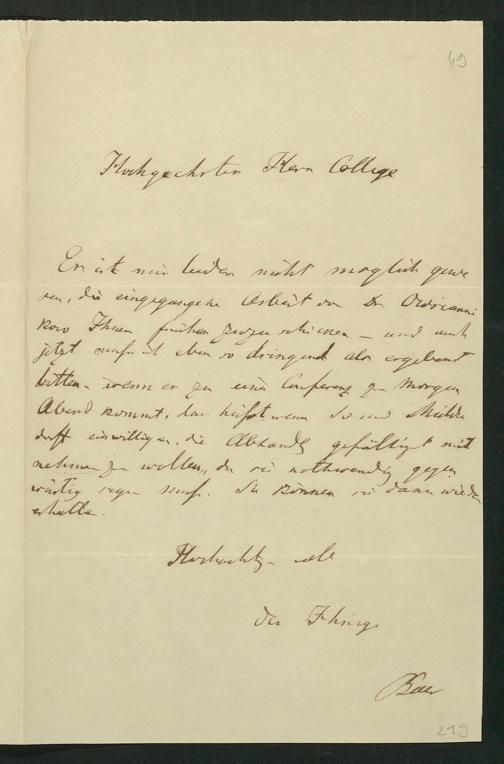 49
Hochgeehrter Herr College
Es ist mir leider nicht möglich gewe
sen, die eingegangene Arbeit von Dr
Ihnen früher zuzuschicken – und auch
jetzt muß ich eben so dringend als ergebenst
bitten, wenn es zu einer Conferenz zu Morgen
Abend kommt, das heißt wenn Sie und
einwilligen, die Abhandlg gefälligst mit
nehmen zu wollen, da sie nothwendig gegen
wärtig seyn muß. Sie können sie dann wieder
erhalten.
Hochachtg
der Ihrige
Baer
219